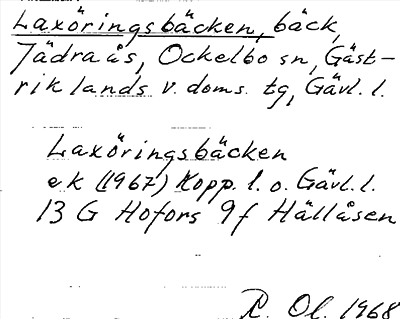 Laxöringsbäcken, bäck,
Jädraås, Ockelbo sn, Gäst-
riklands v. doms. tg, Gävl. l.
Laxöringsbäcken
ek (1967) Kopp. l. o. Gävl. l.
13 G Hofors 9f Hällåsen
R. Ol. 1968